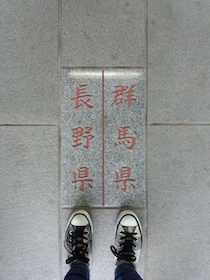 群馬県
長野県